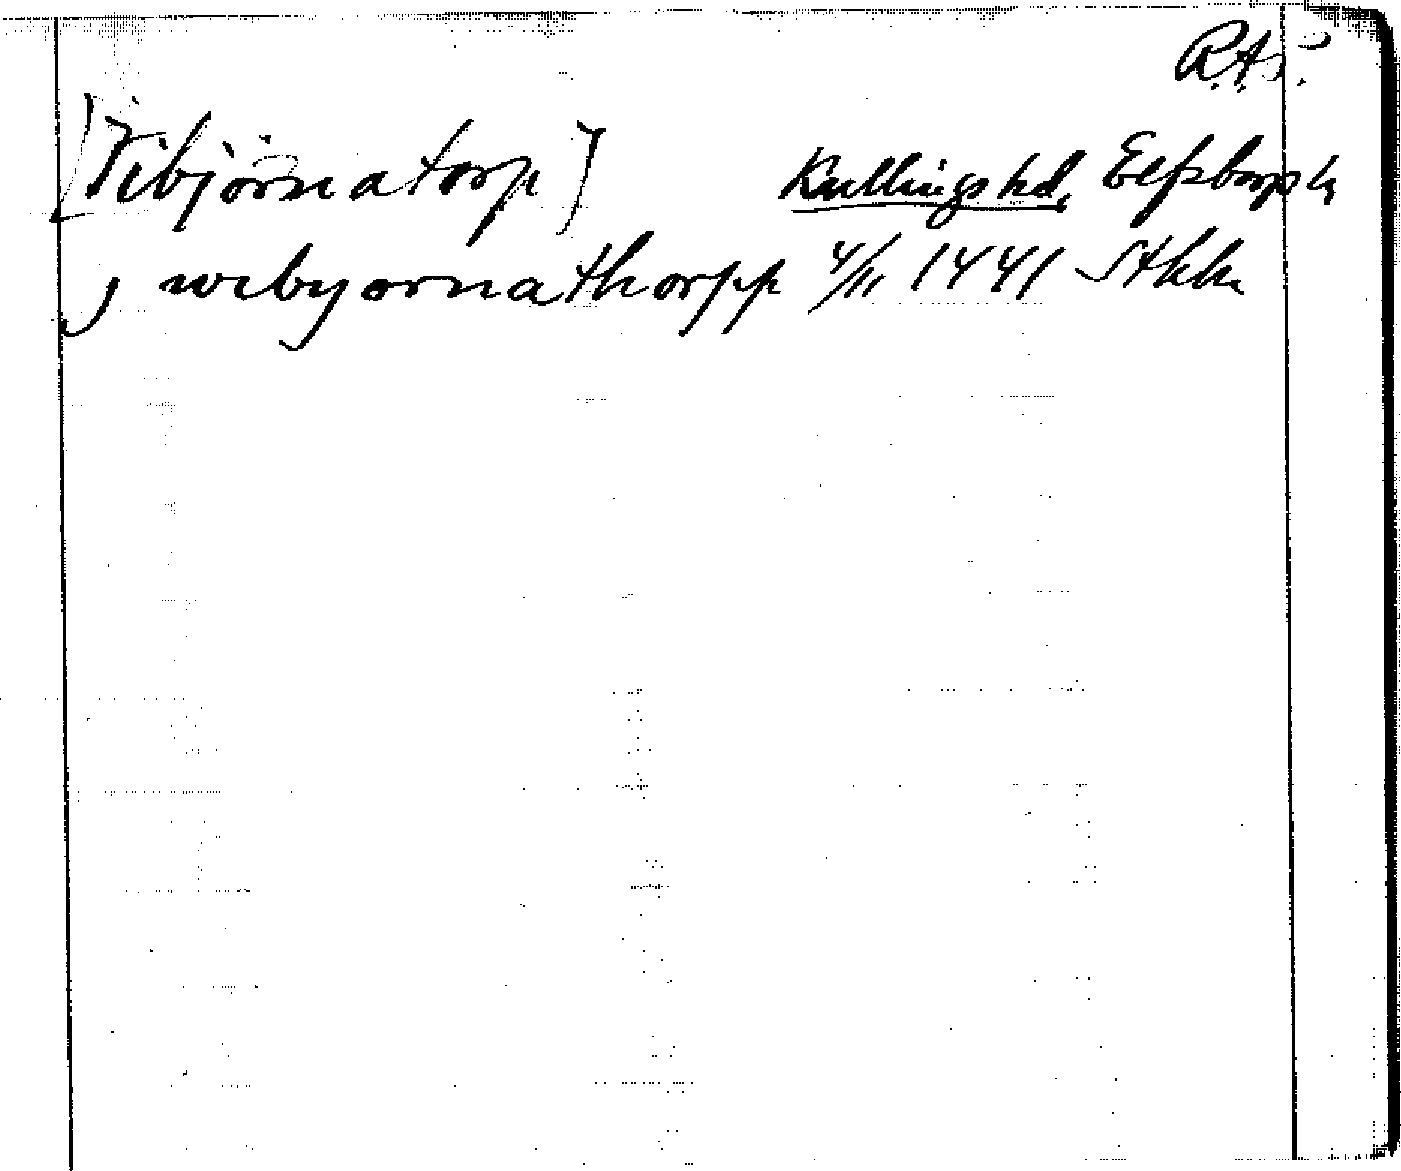 R.A.S.
[Vibjörnatorp] Kullings hd, Elfsborgs l.
j webyornathorpp 4/11 1441 Sthlm